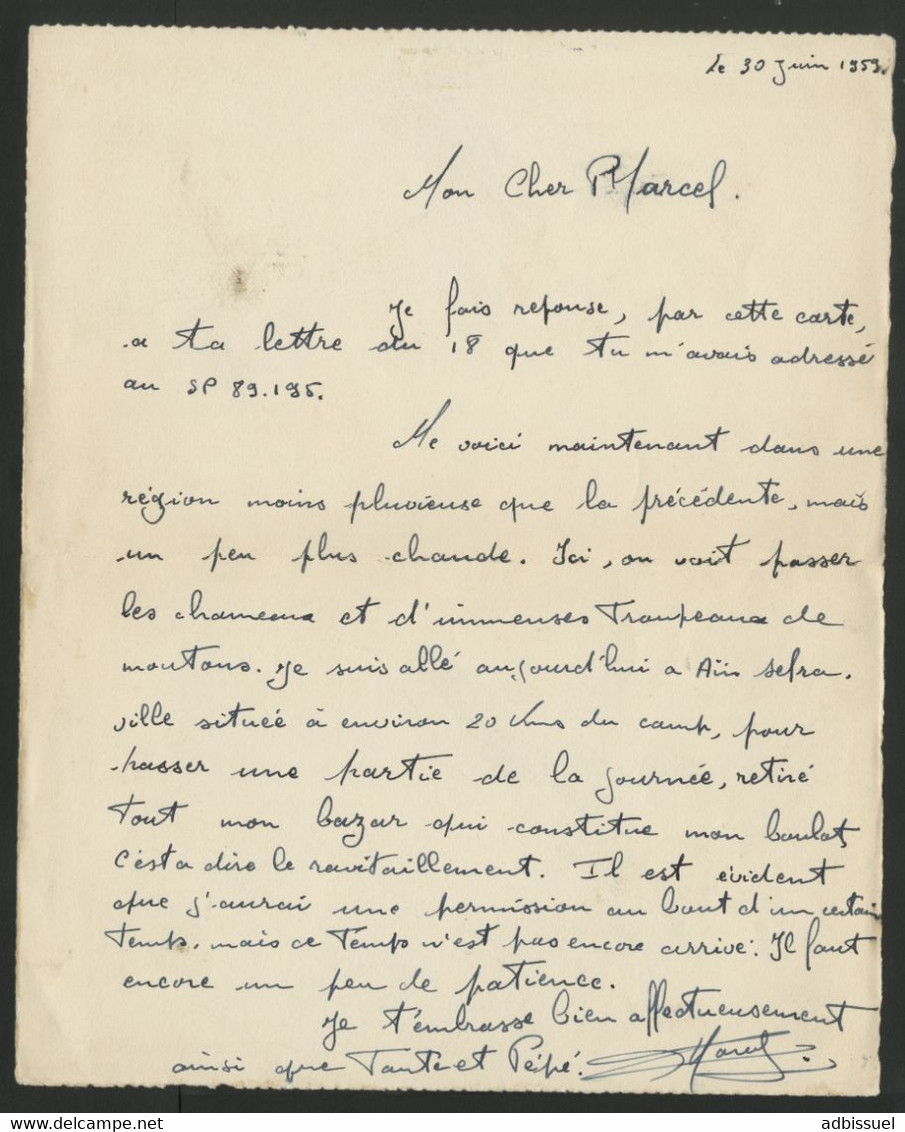 le 30 Juin 1959.
Mon Cher Marcel.
Je fais reponse, par cette carte,
a ta lettre du 18 que tu m'avais adressé
au SP 89.195.
Me voici maintenant dans une
région moins pluvieuse que la précédente, mais
un peu plus chaude. Ici, on voit passer
les chameaux et d'immenses Troupeaux de
moutons. Je suis allé aujourd'hui a Aïn Sefra.
ville située à environ 20 Kms du camp, pour
passer une partie de la journée, retiré
Tout mon bazar qui constitue mon boulot,
c'est a dire le ravitaillement. Il est évident
que j'aurai une permission au bout d'un certain
Temps. mais ce Temps n'est pas encore arrivé. Il faut
encore un peu de patience.
Je t'embrasse bien affectueusement
ainsi que Tante et Pépé.
HipPostcard.com
adbissuel